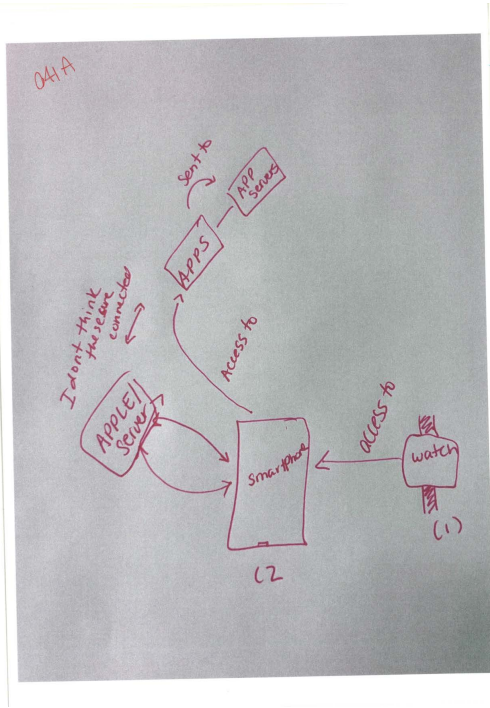 041A
Sent to
APP
Servers
APPS
I dont think
these are
connected
Access to
APPLE//
Server
Smartphone
access to
watch
(1)
(2